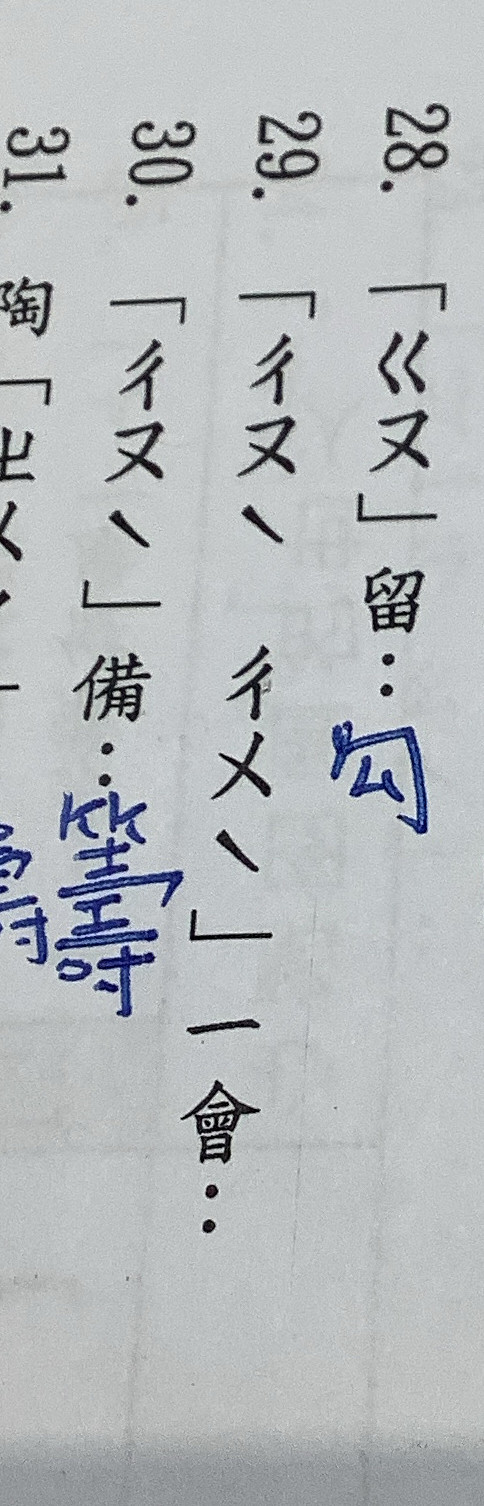 28.「ㄍㄡ」留：勾
29.「ㄔㄡˋ ㄔㄨˋ」一會：
30.「ㄔㄡˋ」備：籌
31.陶「ㄓㄨˋ